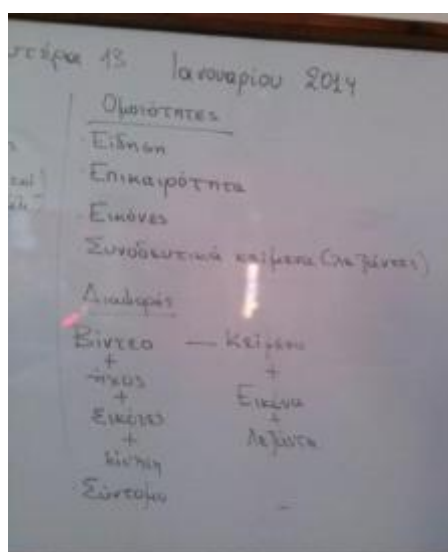 13 Ιανουαρίου 2014
Ομοιότητες
Είδηση
Επικαιρότητα
Εικόνες
Συνοδευτικά κείμενα (λεζάντες)
Διαφορές
Βίντεο — Κείμενο
+ +
ήχος Εικόνα
+ +
Εικόνες Λεζάντα
+
κίνηση
Σύντομο